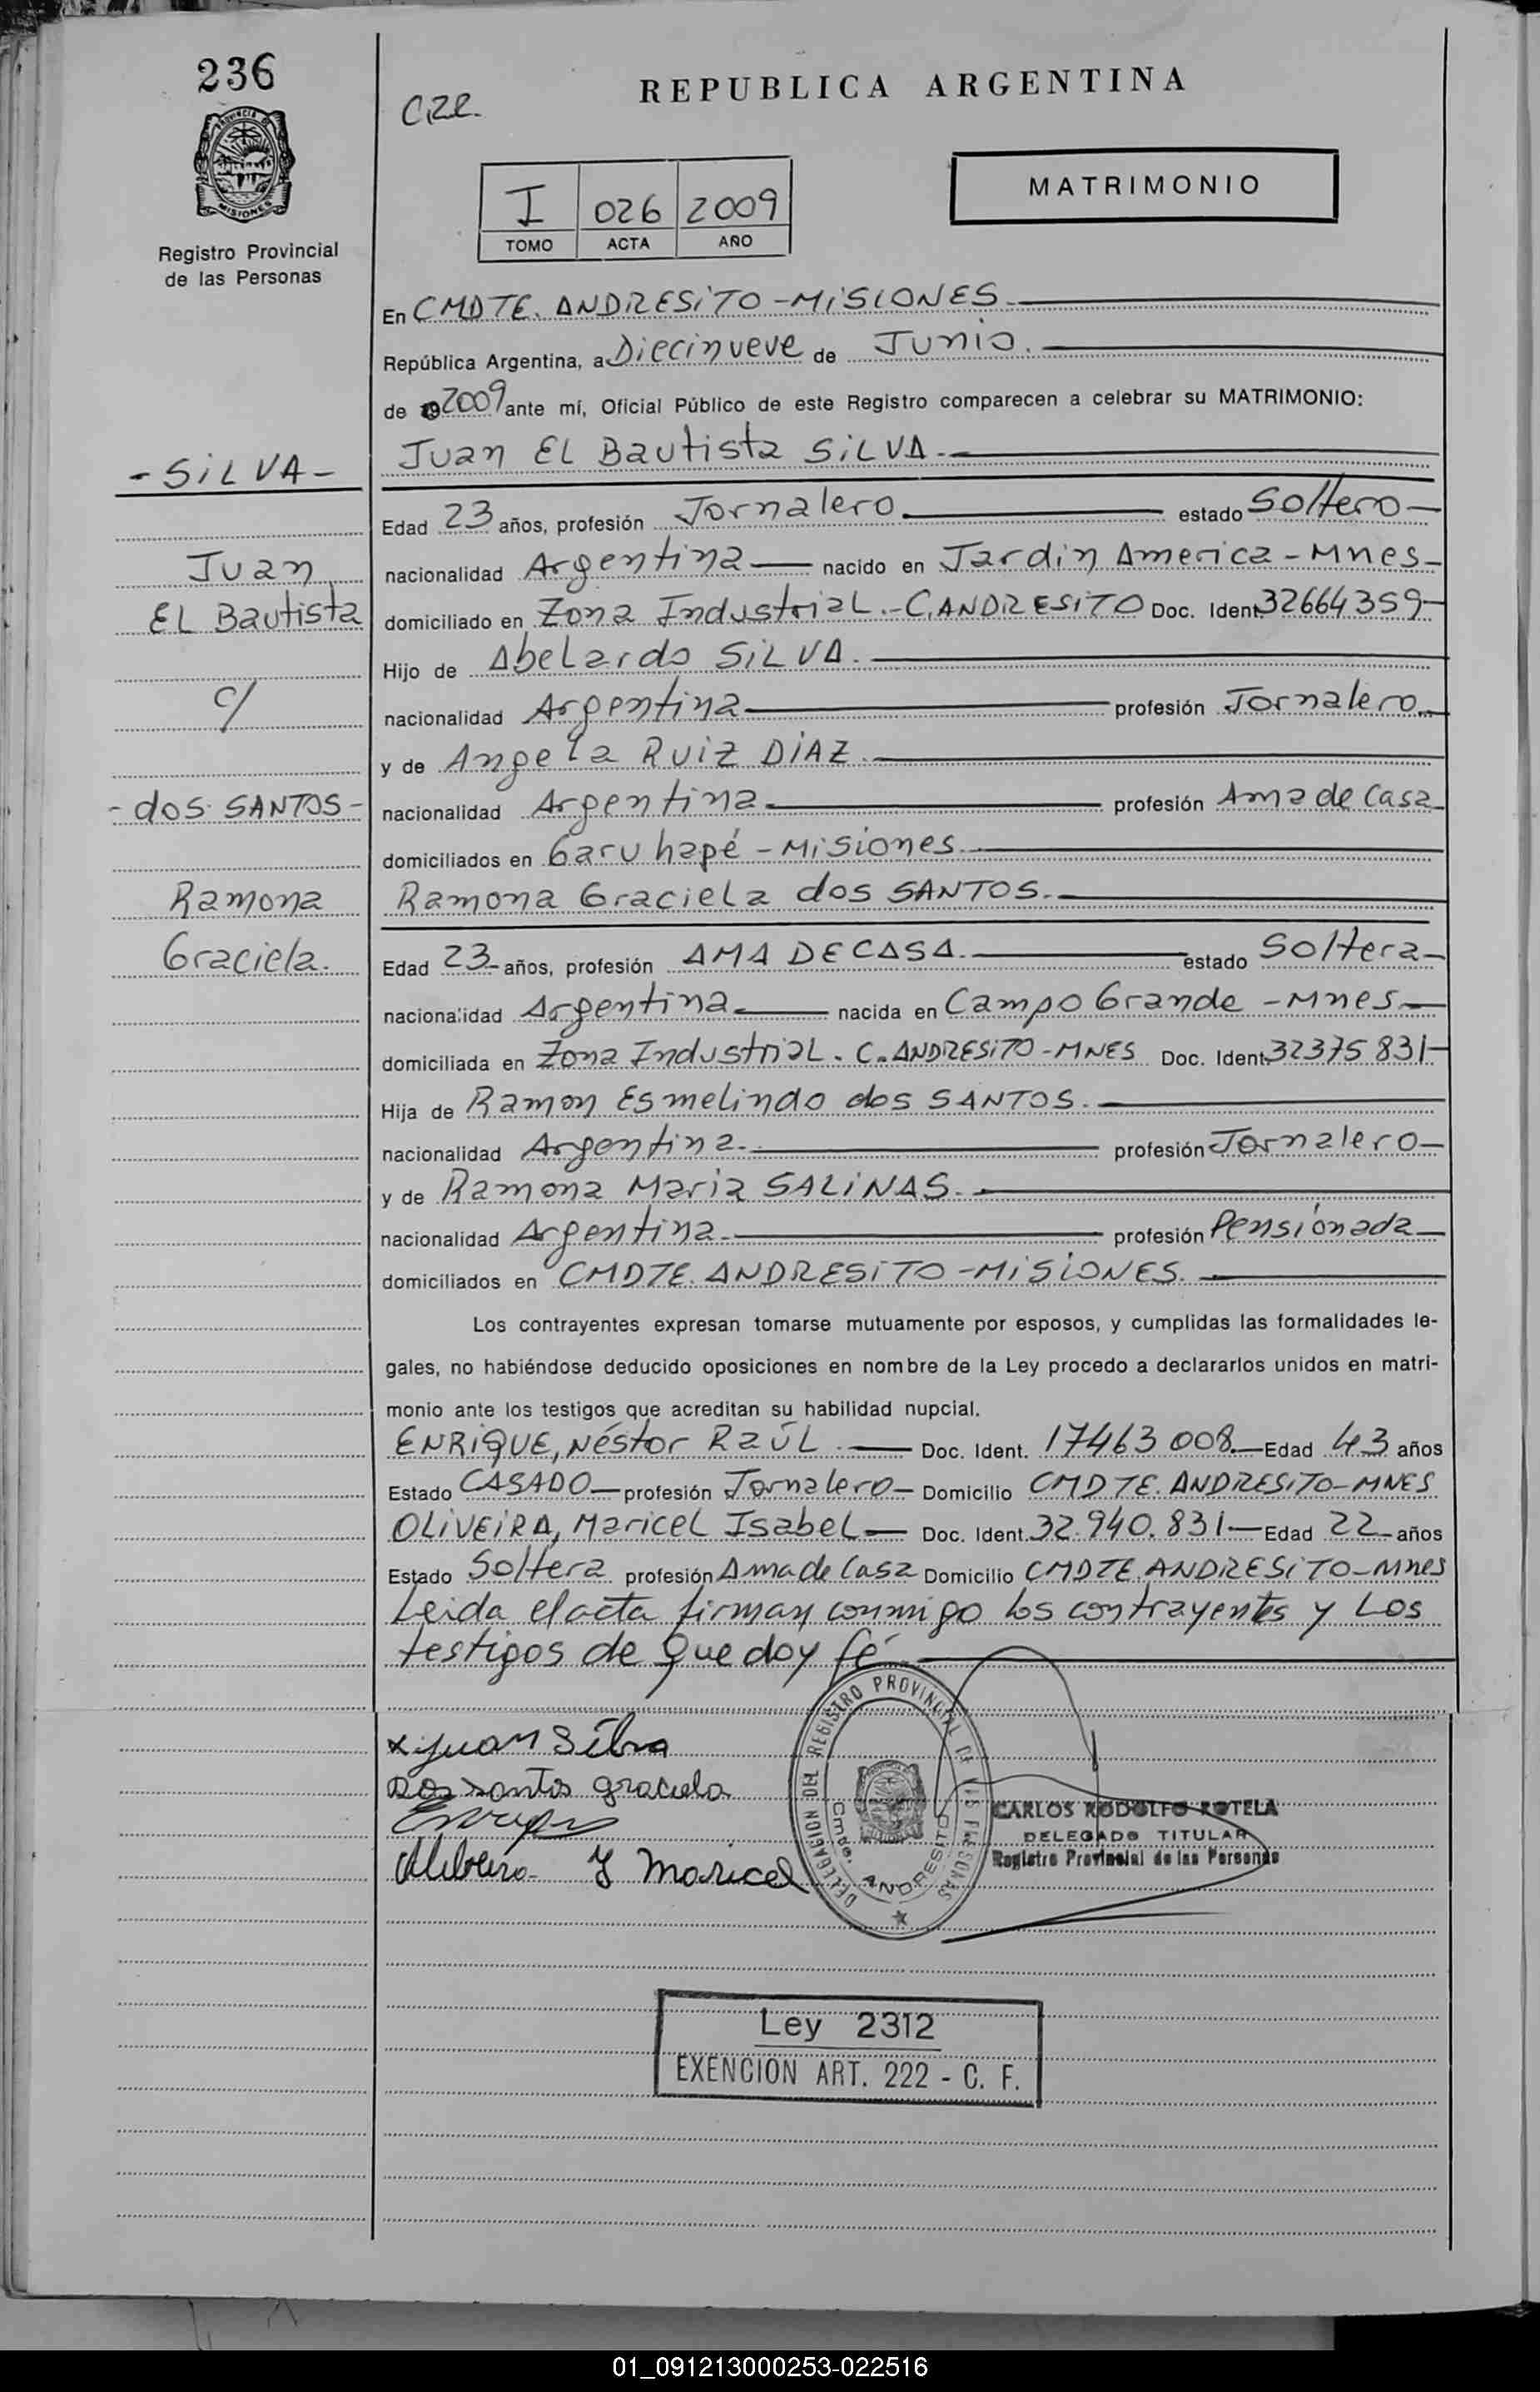 236
REPUBLICA ARGENTINA
PROVINCIA DE
MISIONES
Registro Provincial
de las Personas
I 026 2009
TOMO ACTA AÑO
MATRIMONIO
En CMDTE. ANDRESiTO - MiSiONES
República Argentina, a Diecinueve de Junio.
de 2009 ante mí, Oficial Público de este Registro comparecen a celebrar su MATRIMONIO:
- SiLVA -
Juan EL Bautista SiLVA.
Edad 23 años, profesión Jornalero estado Soltero
Juan
nacionalidad Argentina nacido en Jardin America - Mnes
EL Bautista
domiciliado en Zona IndustriaL.- C.ANDRESiTO Doc. Ident. 32664359
Hijo de AbeLardo SiLVA.
c/
nacionalidad Argentina profesión Jornalero
y de AngeLa RUiZ DiAZ.
- dos SANTOS -
nacionalidad Argentina profesión Ama de Casa
domiciliados en Garuhapé - Misiones
Ramona
Ramona GracieLa dos SANTOS.
Graciela.
Edad 23 años, profesión AMA DE CASA. estado Soltera
nacionalidad Argentina nacida en Campo Grande - Mnes
domiciliada en Zona IndustriaL. C. ANDRESiTO - MNES Doc. Ident. 32375831
Hija de Ramon Esmelindo dos SANTOS.
nacionalidad Argentina. profesión Jornalero
y de Ramona Maria SALiNAS.
nacionalidad Argentina profesión Pensionada
domiciliados en CMDTE. ANDRESiTO - MiSiONES.
Los contrayentes expresan tomarse mutuamente por esposos, y cumplidas las formalidades le-
gales, no habiéndose deducido oposiciones en nombre de la Ley procedo a declararlos unidos en matri-
monio ante los testigos que acreditan su habilidad nupcial.
ENRiQUE, Néstor RaúL. Doc. Ident. 17463008. Edad 43 años
Estado CASADO profesión Jornalero Domicilio CMDTE. ANDRESiTO - MNES
OLiVEiRA, MariceL IsabeL Doc. Ident. 32.940.831 Edad 22 años
Estado Soltera profesión Ama de Casa Domicilio CMDTE. ANDRESiTO - Mnes
Leida el acta firman conmigo los contrayentes y Los
testigos de que doy fé.
x Juan Silva
Dos santos graciela
Y Maricel
DELEGACION DEL REGISTRO PROVINCIAL DE LAS PERSONAS
Cmte. ANDRESITO
CARLOS RODOLFO ROTELA
DELEGADO TITULAR
Registro Provincial de las Personas
Ley 2312
EXENCION ART. 222 - C. F.
01_091213000253-022516